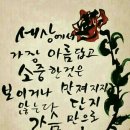 세상에서
가장 아름답고
소중한것은
보이거나 만져지지
않는다 단지
가슴만으로